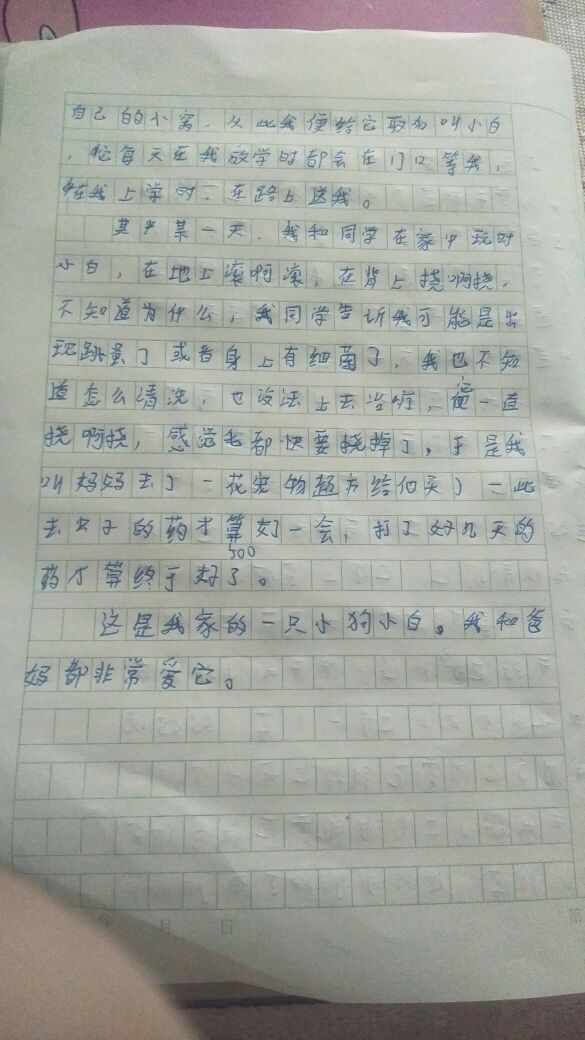 自己的小窝，从此我便给它取为叫小白
，它每天在我放学时都会在门口等我，
在我上学时，在路上送我。
其中某一天，我和同学在家中玩时
小白，在地上滚啊滚，在背上挠啊挠，
不知道为什么，我同学告诉我可能是出
现跳蚤了或者身上有细菌了，我也不知
道怎么清洗，也没法上去治疗，一直
挠啊挠，感觉毛都快要挠掉了，于是我
叫妈妈去了一花宠物超市给他买了一些
去虫子的药才算好一会，打了好几天的
500
药才算终于好了。
这是我家的一只小狗小白。我和爸
妈都非常爱它。
年 月 日
第